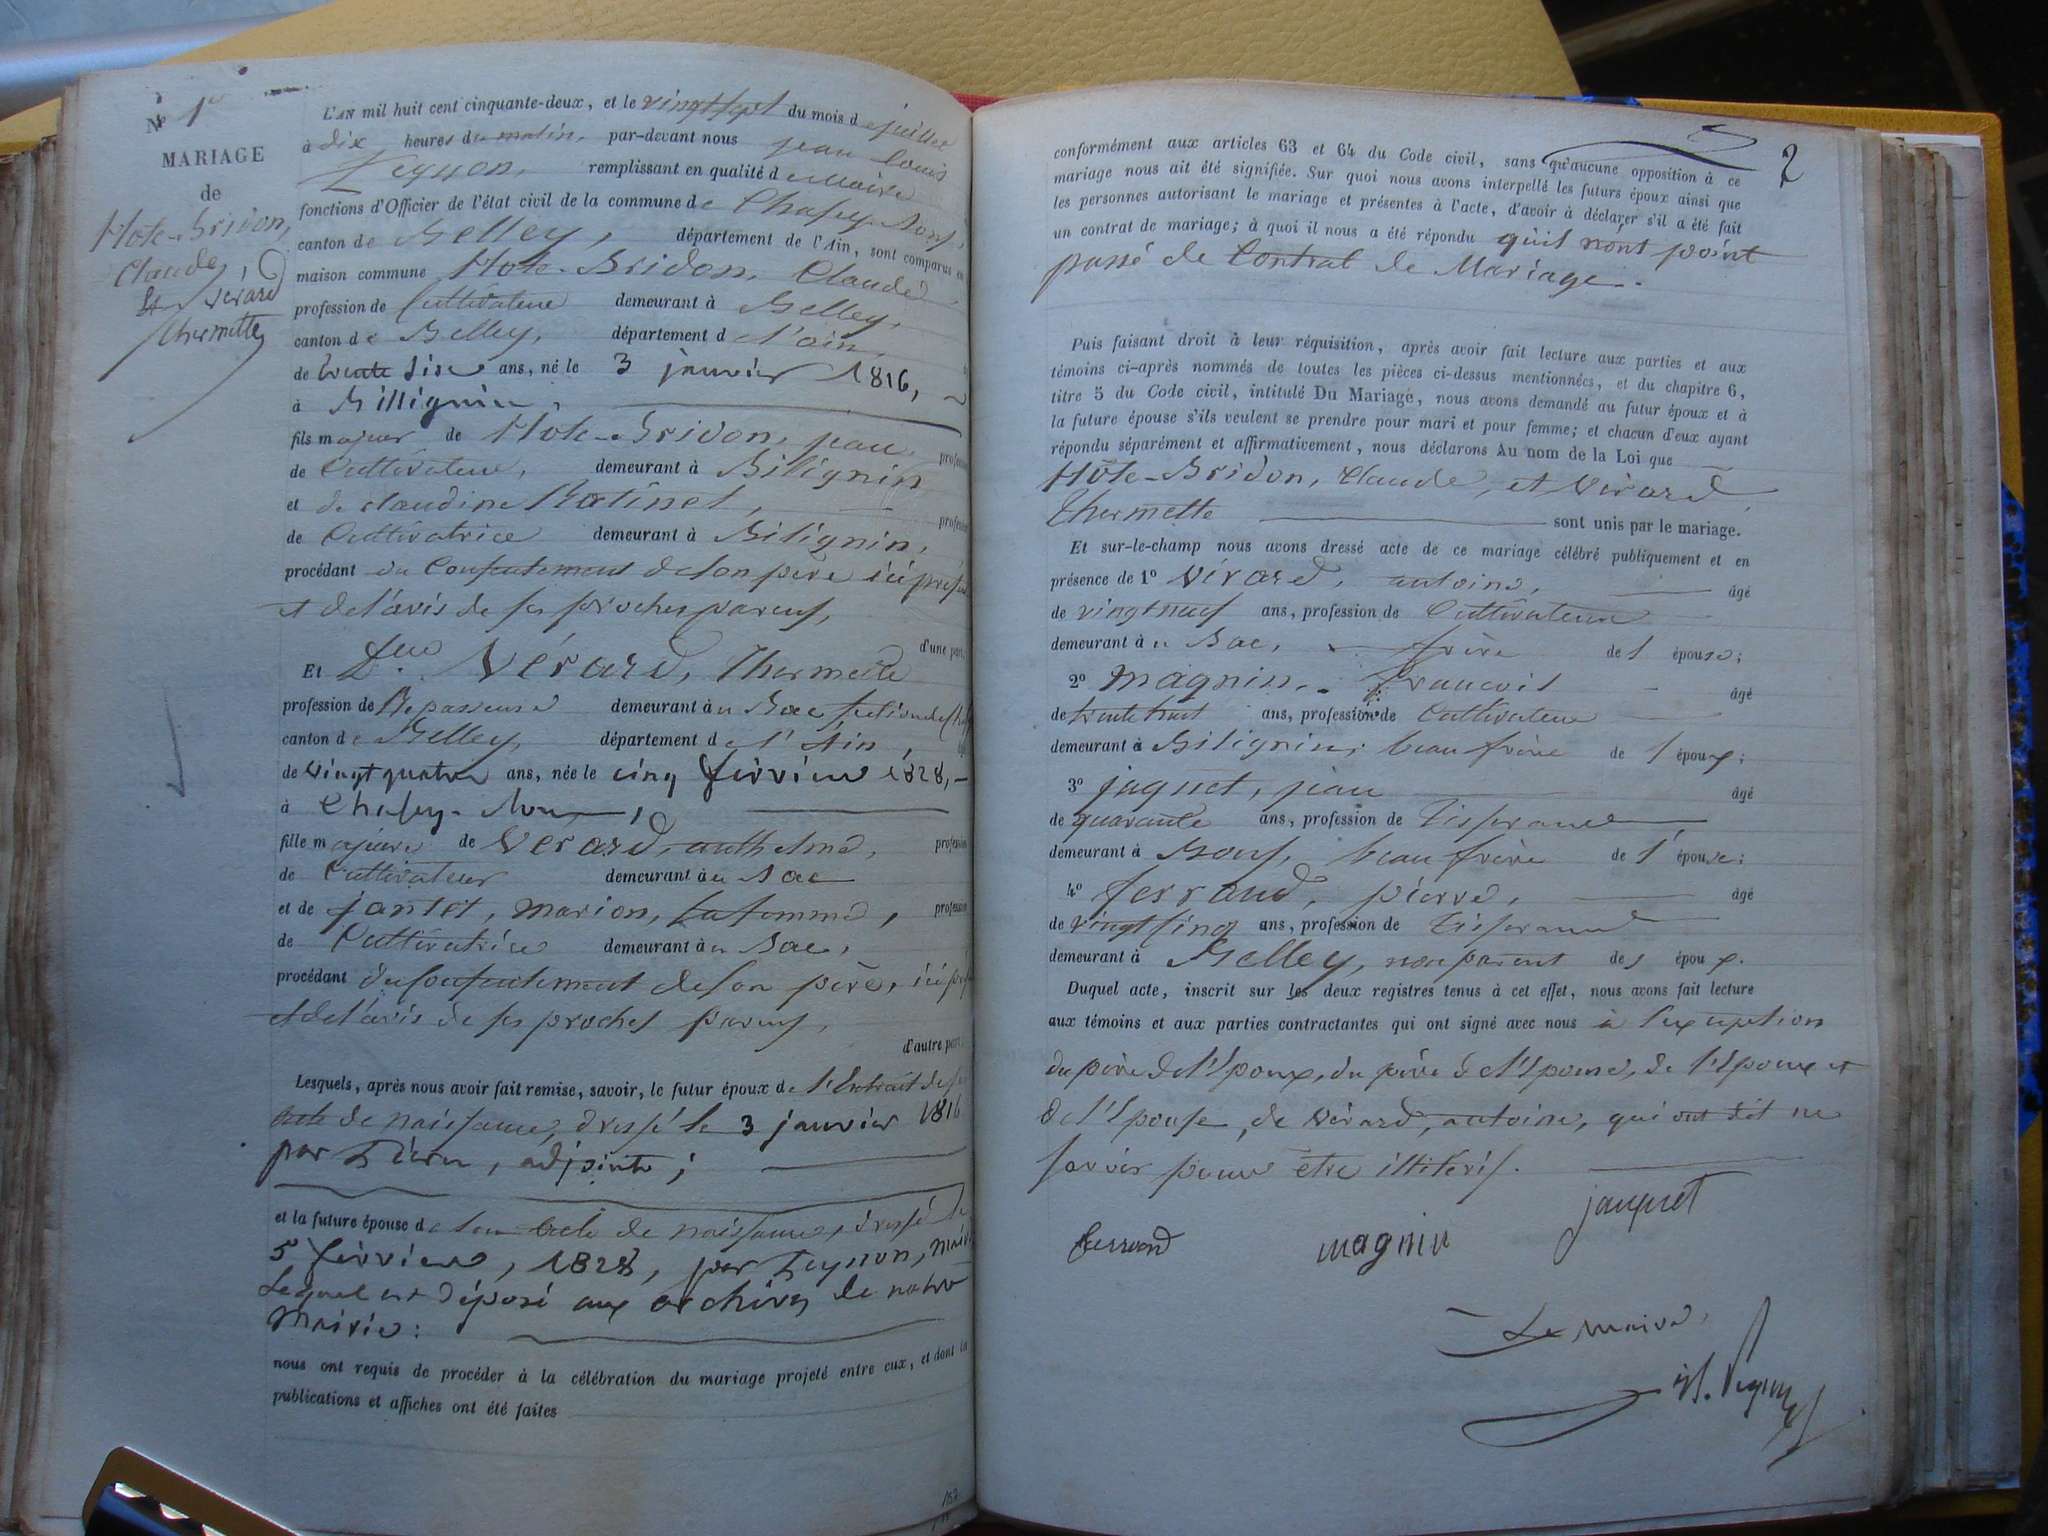 N° 1er
MARIAGE
de
Hote-Bridon,
Claude,
et Vérard
Thermette
L'AN mil huit cent cinquante-deux, et le vingt sept du mois de juillet
à dix heures du matin, par-devant nous jean louis
Peysson, remplissant en qualité de Maire
fonctions d'Officier de l'état civil de la commune de Chazey-Bons,
canton de Belley, département de l'Ain, sont comparus en
maison commune Hote-Bridon, Claude,
profession de Cultivateur demeurant à Belley,
canton de Belley, département d l'ain,
de trente six ans, né le 3 janvier 1816,
à Billignin,
fils majeur de Hote-Bridon, jean, profession
de Cultivateur, demeurant à Bilignin
et de claudine Ratinet, profession
de Cultivatrice demeurant à Bilignin,
procédant du Consentement de son père ici présent
et de l'avis de ses proches parens,
d'une part,
Et Dlle Vérard, Thermette
profession de Repasseuse demeurant à u Bac section de
canton de Belley, département de l'Ain,
de vingt quatre ans, née le cinq février 1828,
à Chazey-Bons,
fille majeure de Vérard, anthelme, profession
de Cultivateur demeurant à u Bac
et de jantet, marion, sa femme, profession
de Cultivatrice demeurant à u Bac,
procédant du Consentement de son père, ici
et de l'avis de ses proches parens,
d'autre part.
Lesquels, après nous avoir fait remise, savoir, le futur époux de l'Extrait de son
acte de naissance, dressé le 3 janvier 1816
par adjoint;
et la future épouse de son acte de naissance, dressé le
5 février, 1828, par Peysson, Maire
Lequel est déposé aux archives de notre
Mairie:
nous ont requis de procéder à la célébration du mariage projeté entre eux, et dont les
publications et affiches ont été faites
2
conformément aux articles 63 et 64 du Code civil, sans qu'aucune opposition à ce
mariage nous ait été signifiée. Sur quoi nous avons interpellé les futurs époux ainsi que
les personnes autorisant le mariage et présentes à l'acte, d'avoir à déclarer s'il a été fait
un contrat de mariage; à quoi il nous a été répondu qu'ils n'ont point
passé de Contrat de Mariage.
Puis faisant droit à leur réquisition, après avoir fait lecture aux parties et aux
témoins ci-après nommés de toutes les pièces ci-dessus mentionnées, et du chapitre 6,
titre 5 du Code civil, intitulé Du Mariage, nous avons demandé au futur époux et à
la future épouse s'ils veulent se prendre pour mari et pour femme; et chacun d'eux ayant
répondu séparément et affirmativement, nous déclarons Au nom de la Loi que
Hôte-Bridon, Claude, et Vérard
Thermette sont unis par le mariage.
Et sur-le-champ nous avons dressé acte de ce mariage célébré publiquement et en
présence de 1° Vérard, antoine, âgé
de vingt neuf ans, profession de Cultivateur
demeurant à u Bac, frère de l épouse;
2° Magnin, François âgé
de trente huit ans, profession de Cultivateur
demeurant à Bilignin, beau frère de l époux;
3° jaquet, jean âgé
de quarante ans, profession de Tisserand
demeurant à Bons, beau frère de l' épouse;
4° ferrand, pierre, âgé
de vingt cinq ans, profession de Tisserand
demeurant à Belley, non parent des époux.
Duquel acte, inscrit sur les deux registres tenus à cet effet, nous avons fait lecture
aux témoins et aux parties contractantes qui ont signé avec nous à l'exception
du père de l'Epoux, du père de l'Epouse, de l'Epoux et
de l'Epouse, de Vérard, antoine, qui ont dit ne
savoir pour être illitérés.
ferrand magnin jaquet
Le Maire,